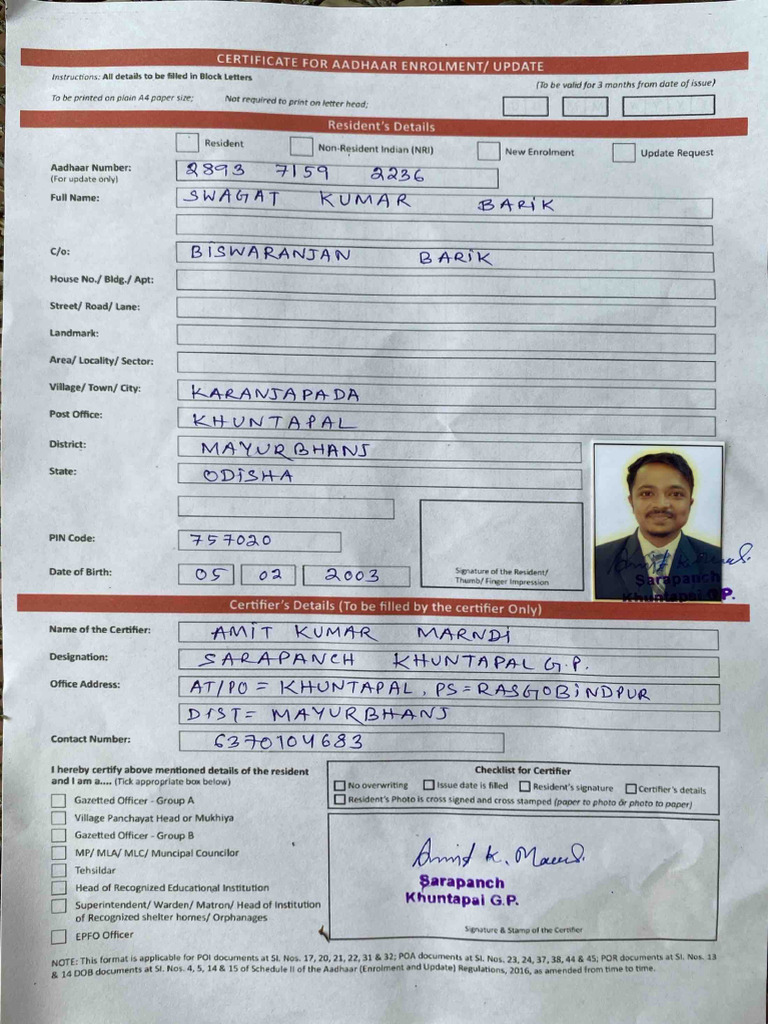 CERTIFICATE FOR AADHAAR ENROLMENT/ UPDATE
Instructions: All details to be filled in Block Letters
(To be valid for 3 months from date of issue)
To be printed on plain A4 paper size; Not required to print on letter head;
Resident's Details
Resident Non-Resident Indian (NRI) New Enrolment Update Request
Aadhaar Number: 2893 7159 2236
(For update only)
Full Name: SWAGAT KUMAR BARIK
C/o: BISWARANJAN BARIK
House No./ Bldg./ Apt:
Street/ Road/ Lane:
Landmark:
Area/ Locality/ Sector:
Village/ Town/ City: KARANJAPADA
Post Office: KHUNTAPAL
District: MAYURBHANJ
State: ODISHA
PIN Code: 757020
Date of Birth: 05 02 2003
Signature of the Resident/
Thumb/ Finger Impression
Amit K.
Sarapanch
Khuntapal G.P.
Certifier's Details (To be filled by the certifier Only)
Name of the Certifier: AMIT KUMAR MARNDI
Designation: SARAPANCH KHUNTAPAL G.P.
Office Address: AT/PO = KHUNTAPAL, PS = RASGOBINDPUR
DIST = MAYURBHANJ
Contact Number: 6370104683
I hereby certify above mentioned details of the resident
and I am a.... (Tick appropriate box below)
Gazetted Officer - Group A
Village Panchayat Head or Mukhiya
Gazetted Officer - Group B
MP/ MLA/ MLC/ Muncipal Councilor
Tehsildar
Head of Recognized Educational Institution
Superintendent/ Warden/ Matron/ Head of Institution
of Recognized shelter homes/ Orphanages
EPFO Officer
Checklist for Certifier
No overwriting Issue date is filled Resident's signature Certifier's details
Resident's Photo is cross signed and cross stamped (paper to photo or photo to paper)
Amit K.
Sarapanch
Khuntapal G.P.
Signature & Stamp of the Certifier
NOTE: This format is applicable for POI documents at Sl. Nos. 17, 20, 21, 22, 31 & 32; POA documents at Sl. Nos. 23, 24, 37, 38, 44 & 45; POR documents at Sl. Nos. 13
& 14 DOB documents at Sl. Nos. 4, 5, 14 & 15 of Schedule II of the Aadhaar (Enrolment and Update) Regulations, 2016, as amended from time to time.